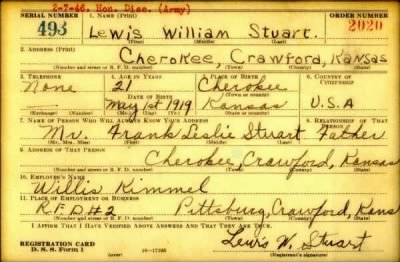 2-7-46. Hon. Disc. (Army)
SERIAL NUMBER 1. NAME (Print) ORDER NUMBER
493 Lewis William Stuart. 2020
(First) (Middle) (Last)
2. ADDRESS (Print)
Cherokee, Crawford, Kansas
(Number and street or R. F. D. number) (Town) (County) (State)
3. TELEPHONE 4. AGE IN YEARS 5. PLACE OF BIRTH 6. COUNTRY OF CITIZENSHIP
None 21 Cherokee
DATE OF BIRTH (Town or county)
— May 1st 1919 Kansas U.S.A
(Exchange) (Number) (Mo.) (Day) (Yr.) (State or country)
7. NAME OF PERSON WHO WILL ALWAYS KNOW YOUR ADDRESS 8. RELATIONSHIP OF THAT PERSON
Mr. Frank Leslie Stuart Father
(Mr., Mrs., Miss) (First) (Middle) (Last)
9. ADDRESS OF THAT PERSON
Cherokee, Crawford, Kansas
(Number and street or R. F. D. number) (Town) (County) (State)
10. EMPLOYER'S NAME
Willis Kimmel
11. PLACE OF EMPLOYMENT OR BUSINESS
R.F.D #2 Pittsburg, Crawford, Kans
(Number and street or R. F. D. number) (Town) (County) (State)
I AFFIRM THAT I HAVE VERIFIED ABOVE ANSWERS AND THAT THEY ARE TRUE.
REGISTRATION CARD
D. S. S. Form 1 (over) Lewis W. Stuart
(Registrant's signature)